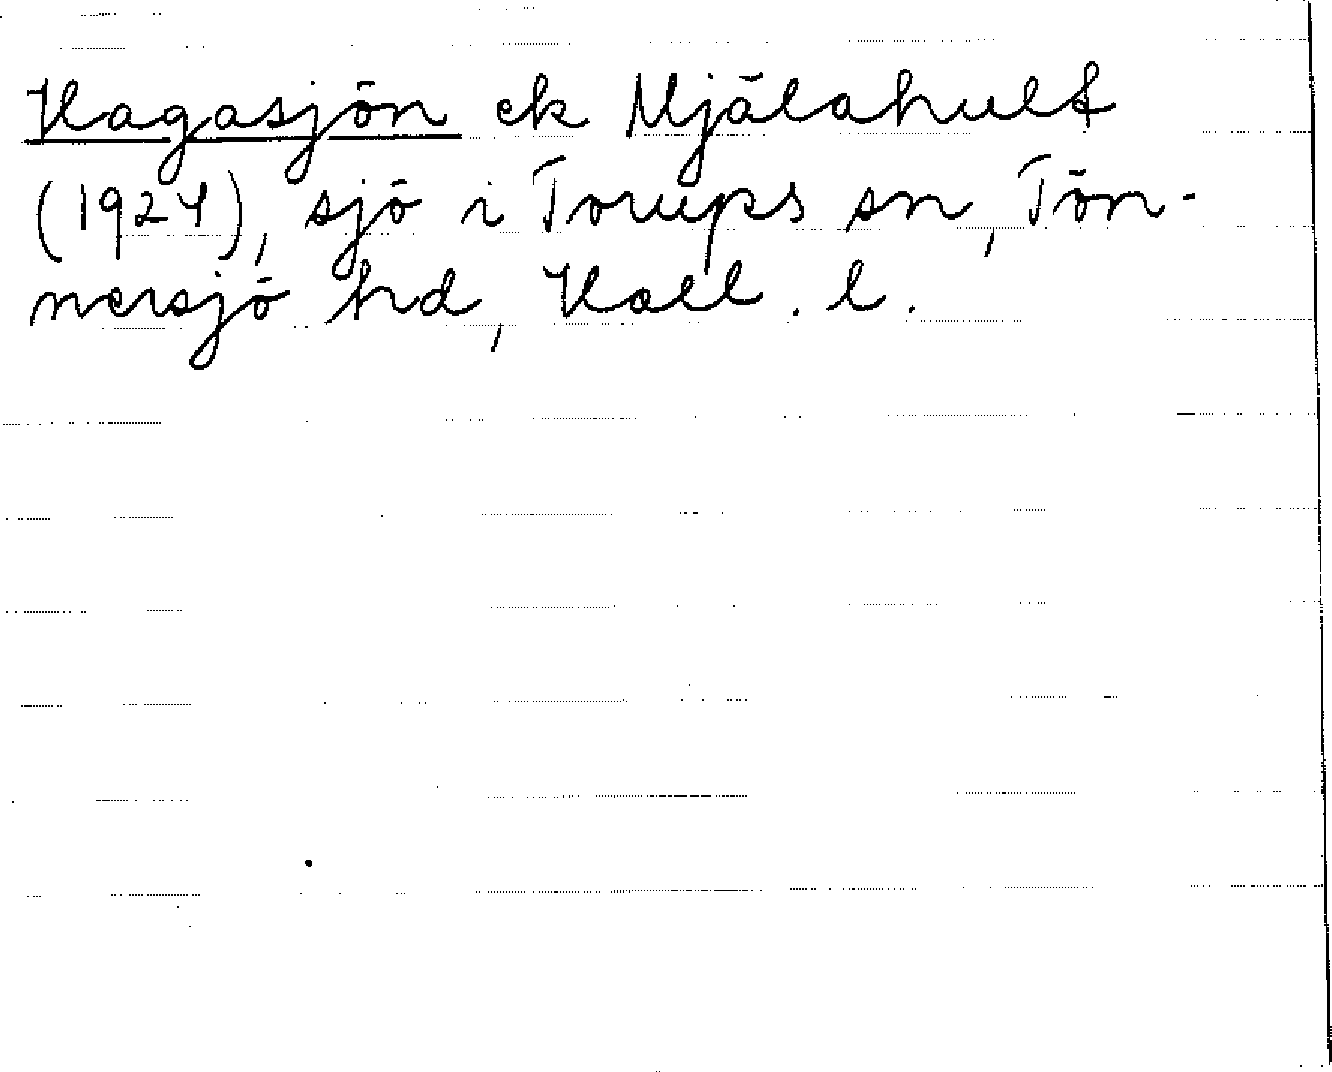 Hagasjön ek Mjälahult
(1924), sjö i Torups sn, Tön-
nersjö hd, Hall. l.